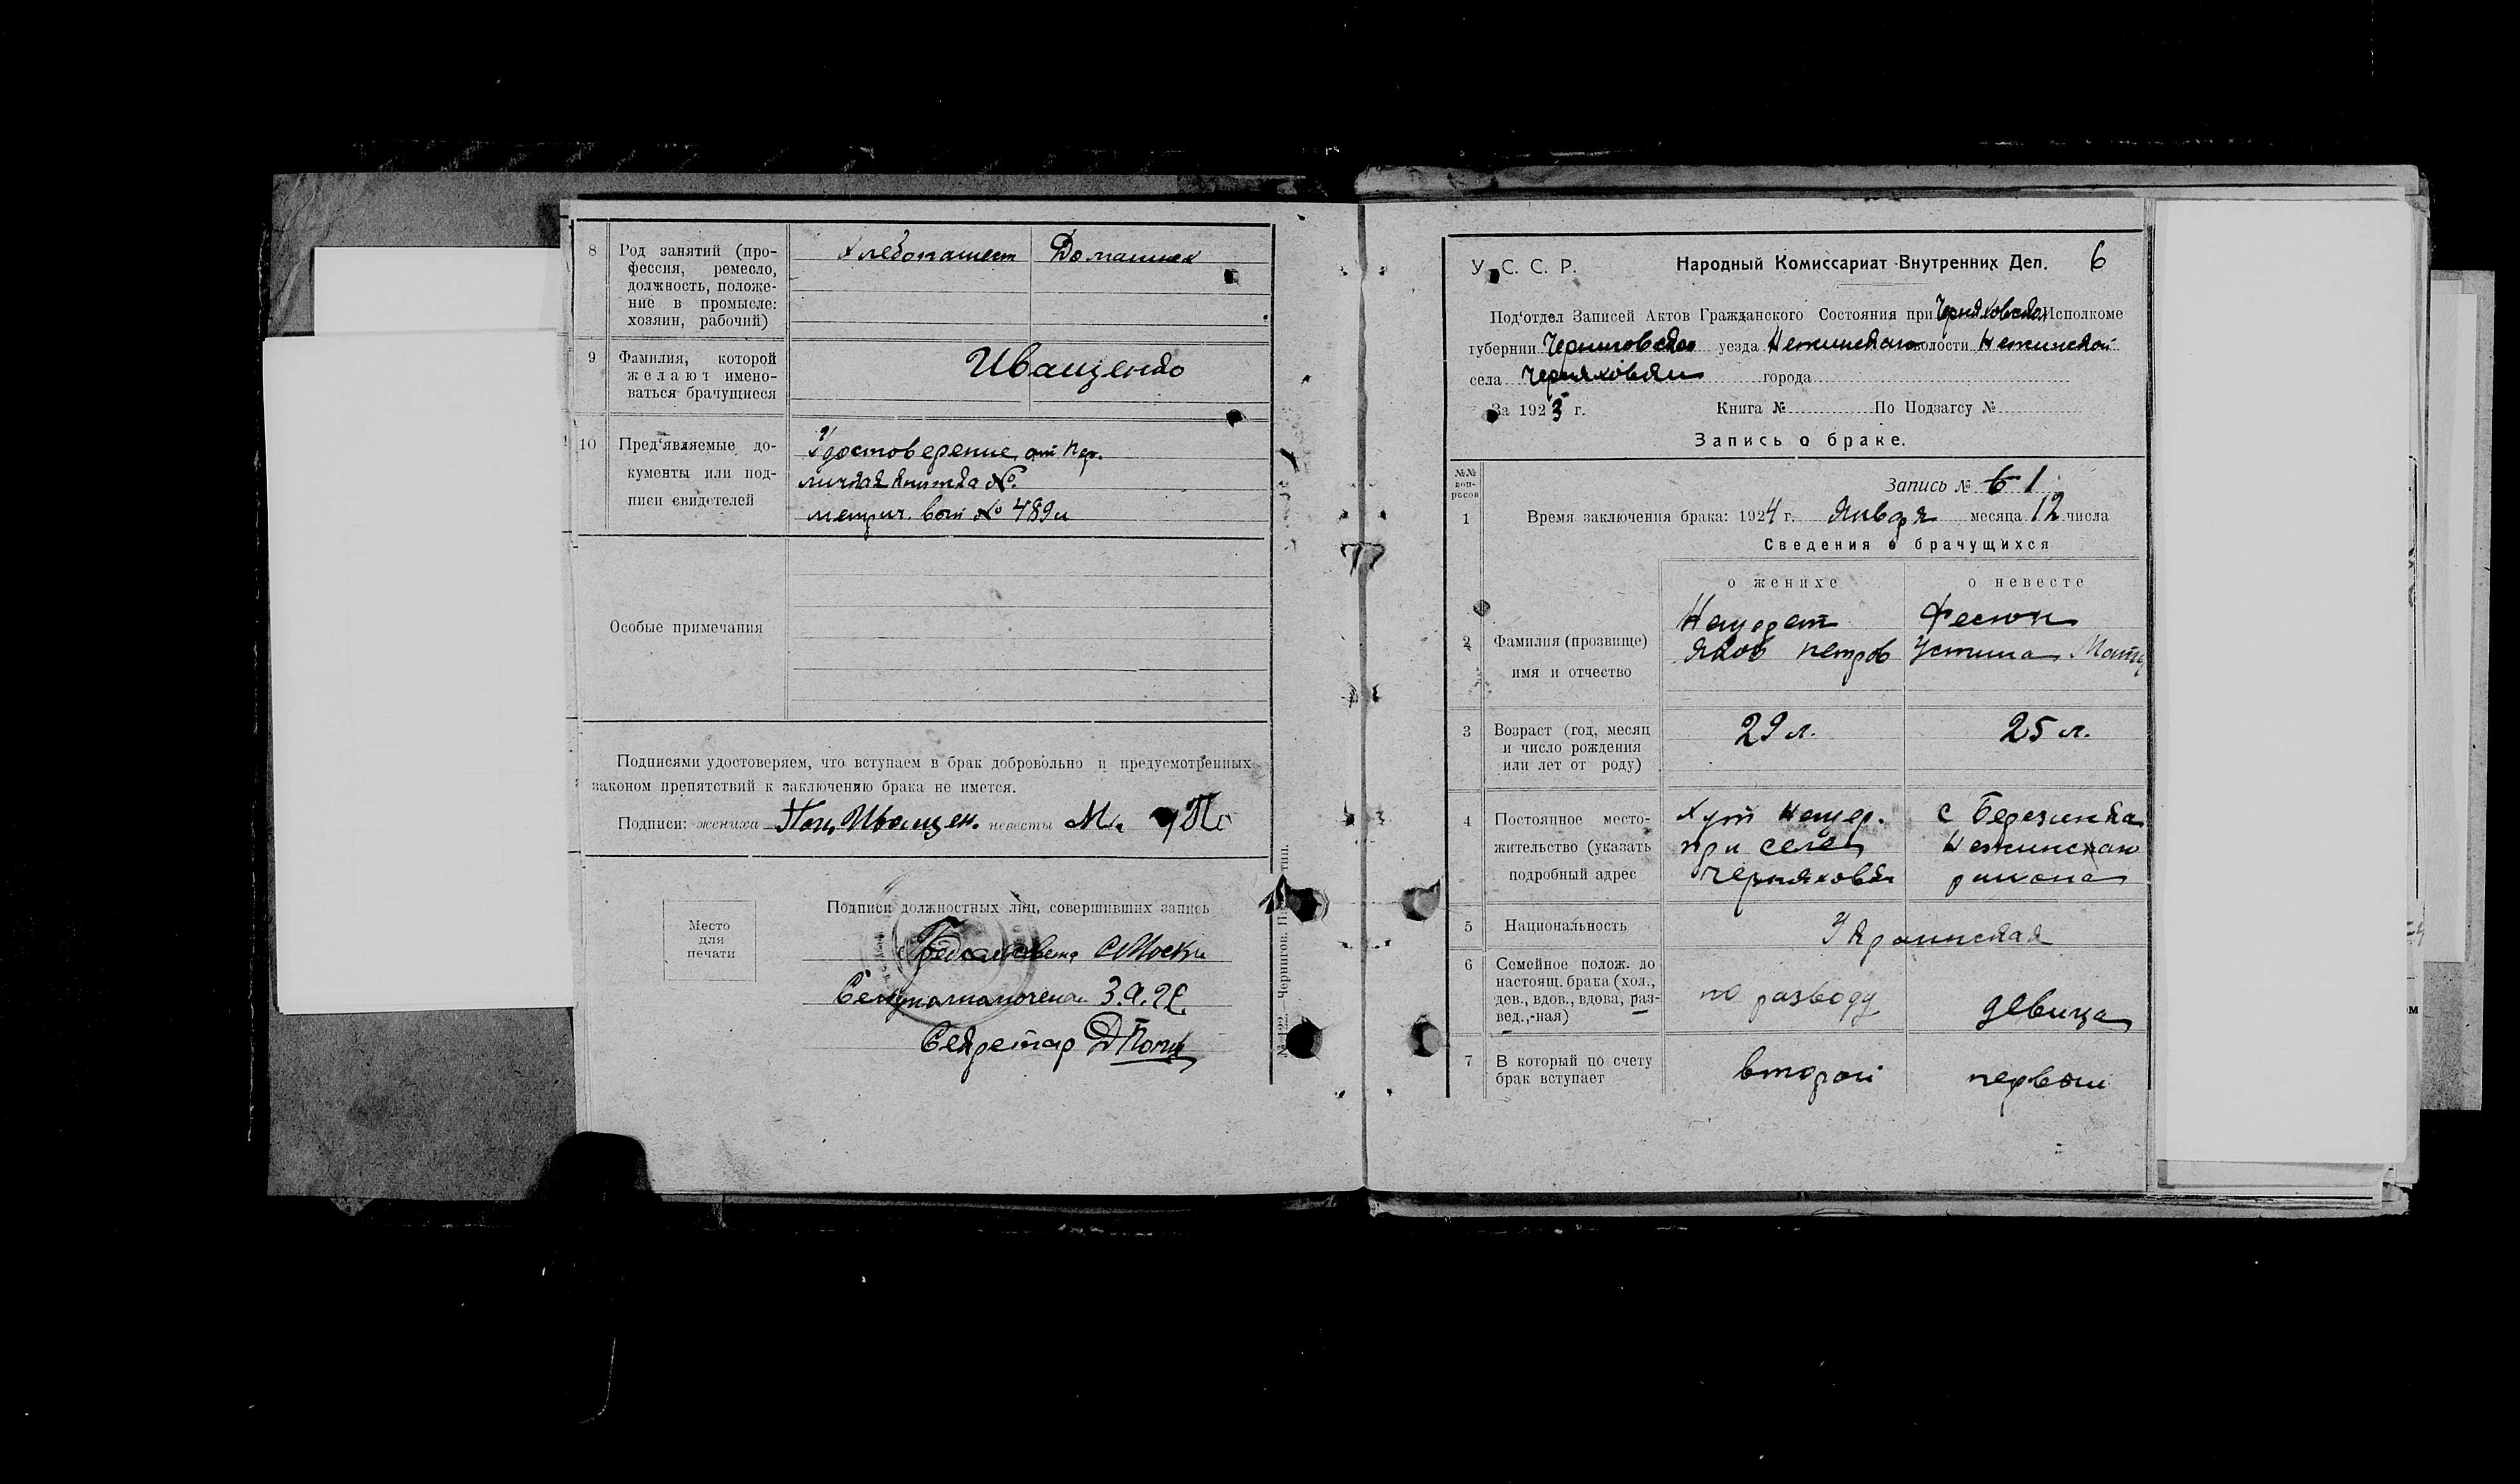 8 Род занятий (про-
фессия, ремесло,
должность, положе-
ние в промысле:
хозяин, рабочий)
Хлебопашест Домашняя
9 Фамилия, которой
желают имено-
ваться брачущиеся
Иващенко
10 Пред'являемые до-
кументы или под-
писи свидетелей
Удостоверение от
личная книжка №
метрич. № 489
Особые примечания
Подписями удостоверяем, что вступаем в брак добровольно и предусмотренных
законом препятствий к заключению брака не имется.
Подписи: жениха Иващен. невесты
Место
для
печати
Подписи должностных лиц, совершивших запись
Секретар
№ 122. Чернигов.
У. С. С. Р. Народный Комиссариат Внутренних Дел. 6
Под'отдел Записей Актов Гражданского Состояния при Черняховском Исполкоме
губернии Черниговской уезда Нежинского волости Нежинской
села Черняховки города
За 1923 г. Книга № По Подзагсу №
Запись о браке.
№№
воп-
росов
Запись № 1
1 Время заключения брака: 1924 г. Января месяца 12 числа
Сведения о брачущихся
о женихе о невесте
2 Фамилия (прозвище)
имя и отчество
Яков Петров
Фесюн
Устина
3 Возраст (год, месяц
и число рождения
или лет от роду)
29 л. 25 л.
4 Постоянное место-
жительство (указать
подробный адрес
Хут
при селе
Черняховки
с Березанка
Нежинского
района
5 Национальность Украинская
6 Семейное полож. до
настоящ. брака (хол.,
дев., вдов., вдова, раз-
вед.,-ная)
по разводу девица
7 В который по счету
брак вступает
второй первый